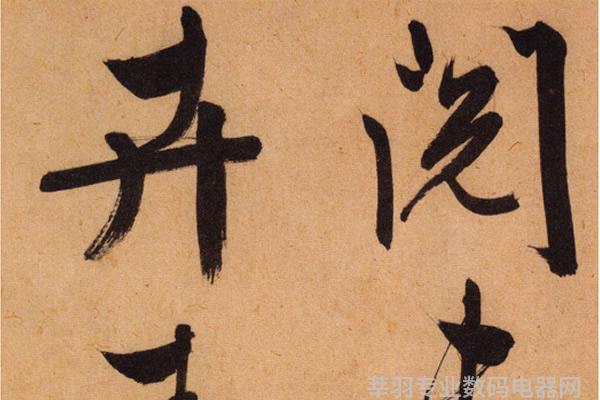 阅
卉
莘羽专业数码电器网